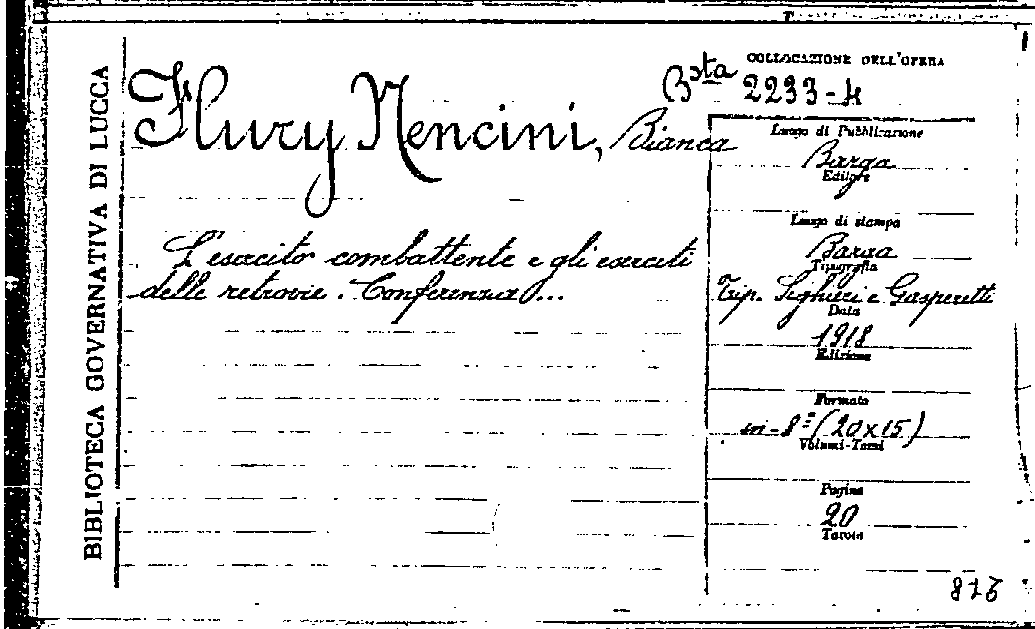 BIBLIOTECA GOVERNATIVA DI LUCCA
Flury Nencini, Bianca
L'esercito combattente e gli eserciti
delle retrovie. Conferenza ...
COLLOCAZIONE DELL'OPERA
Bsta 2233-4
Luogo di Pubblicazione
Barga
Editore
Luogo di stampa
Barga
Tipografia
Tip. Sighieri e Gasperetti
Data
1918
Edizione
Formato
in-8º (20x15)
Volumi-Tomi
Pagine
20
Tavole